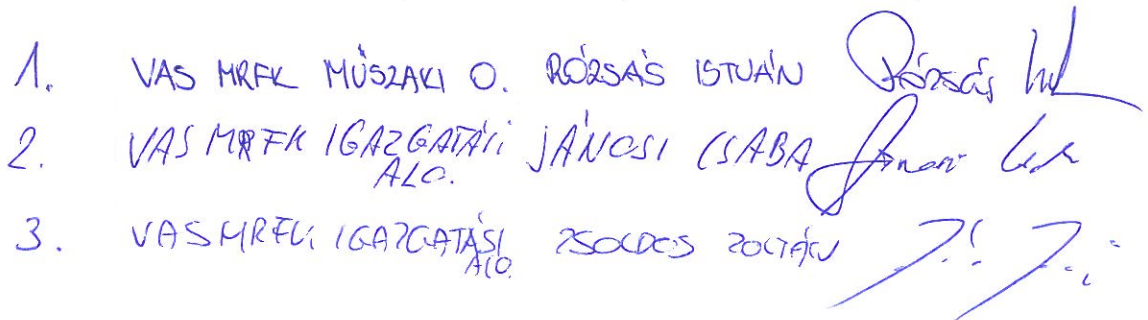 1. VAS MRFK MŰSZAKI O. RÓZSÁS ISTVÁN Rózsás
2. VAS MRFK IGAZGATÁSI JÁNOSI CSABA
ALO.
3. VAS MRFK IGAZGATÁSI ZSOLDOS ZOLTÁN
ALO.